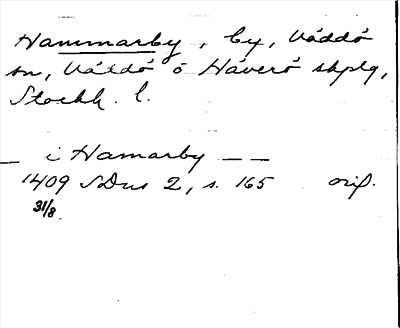 Hammarby, by, Väddö
sn, Väddö o Häverö skplg,
Stockh. l.
— i Hamarby — —
1409 SDns 2, s. 165 orig.
31/8